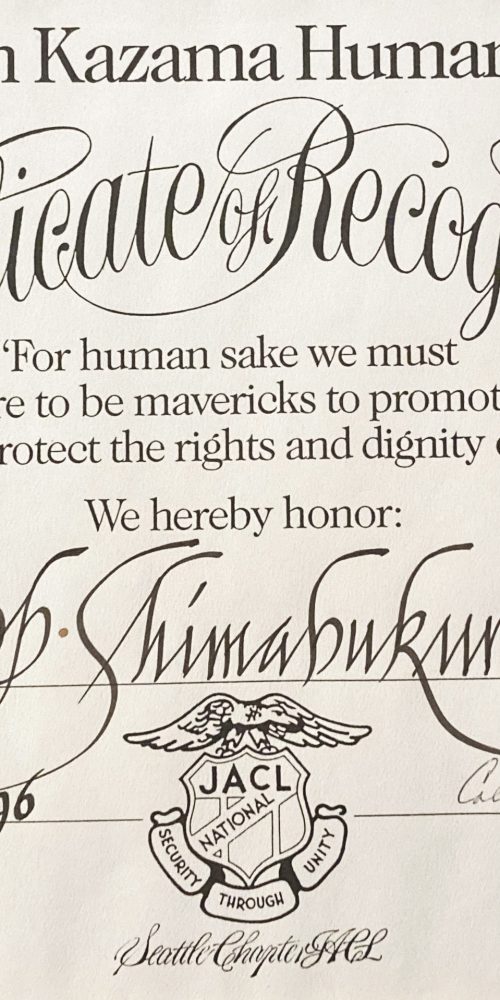 n Kazama Human
icate of Recog
‘For human sake we must
re to be mavericks to promot
rotect the rights and dignity
We hereby honor:
b. Shimabukur
96
JACL
NATIONAL
SECURITY
THROUGH
UNITY
Seattle Chapter JACL